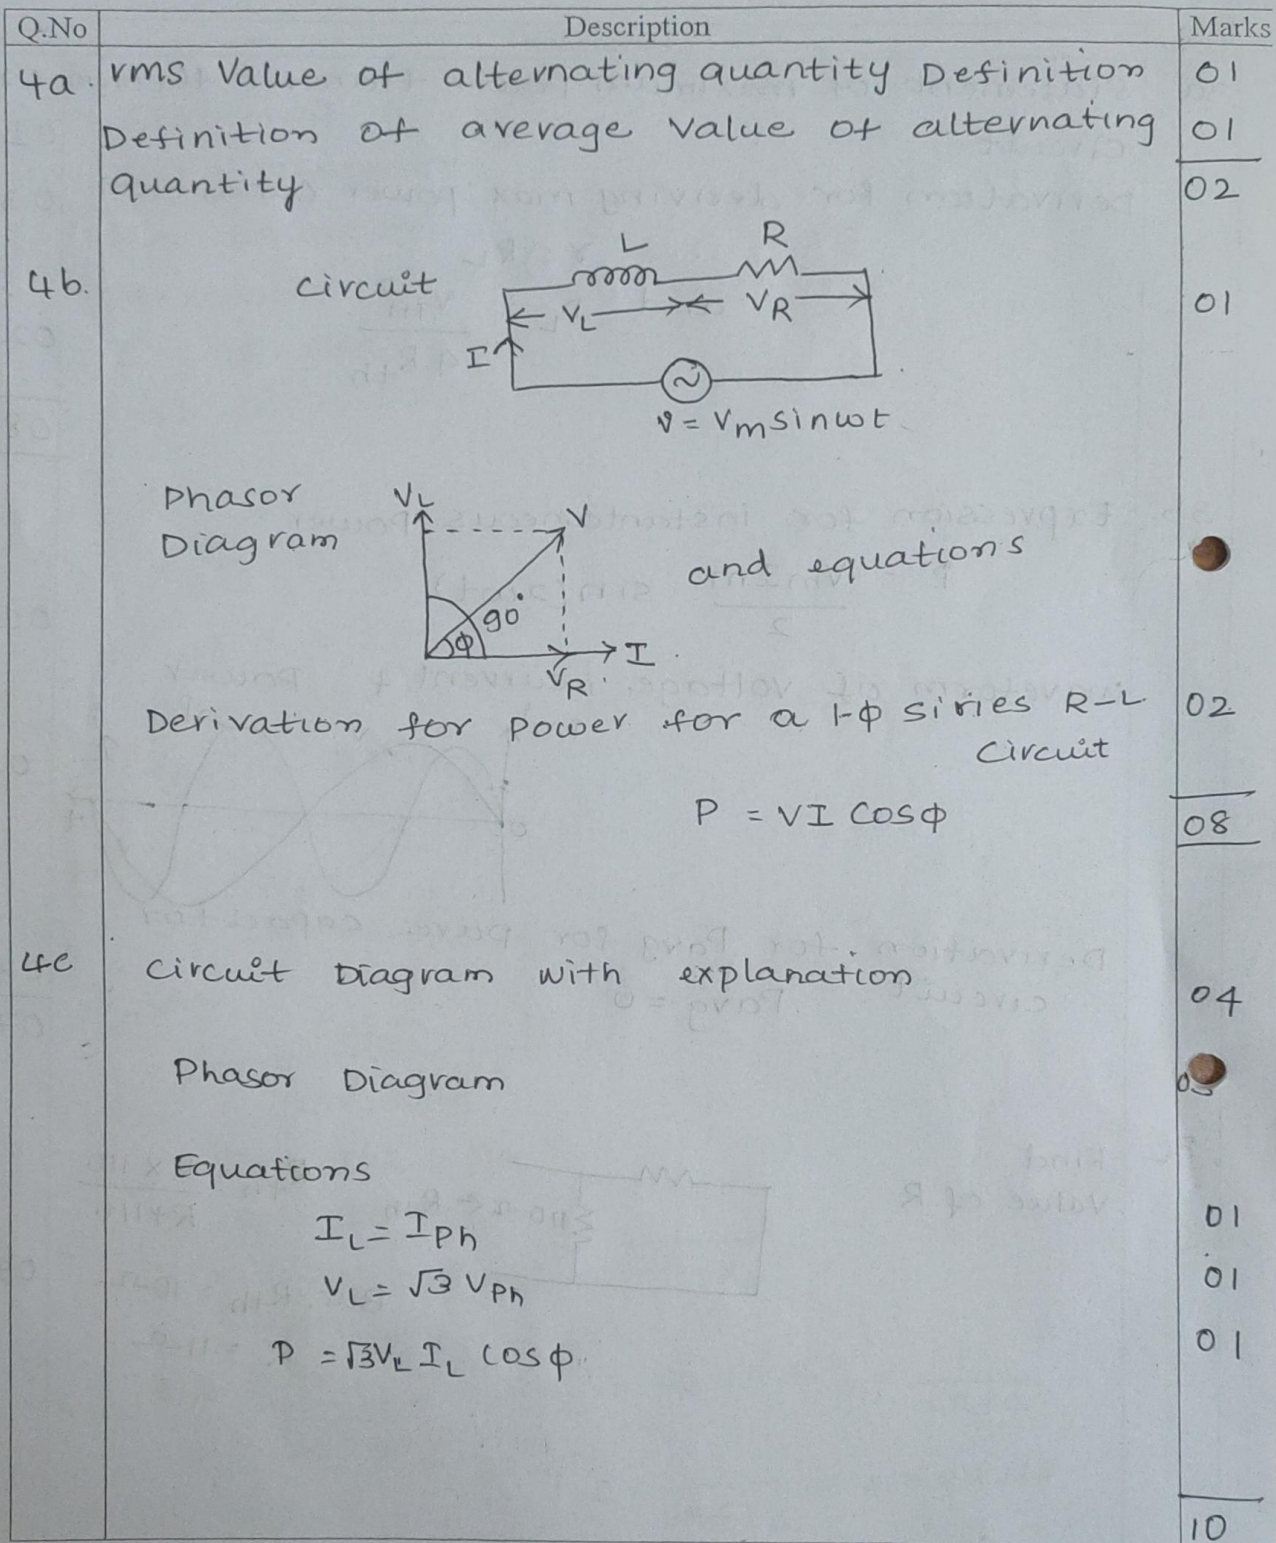 Q.No Description Marks
4a. rms Value of alternating quantity Definition 01
Definition of average value of alternating 01
quantity 02
4b. circuit L R 01
VL VR
I
v = Vm sinωt
Phasor VL V
Diagram and equations
90°
ϕ I
VR
Derivation for power for a 1-ϕ siries R-L 02
circuit
P = VI cosϕ 08
4c circuit Diagram with explanation 04
Phasor Diagram
Equations
IL = IPh 01
VL = √3 VPh 01
P = √3VL IL cosϕ. 01
10